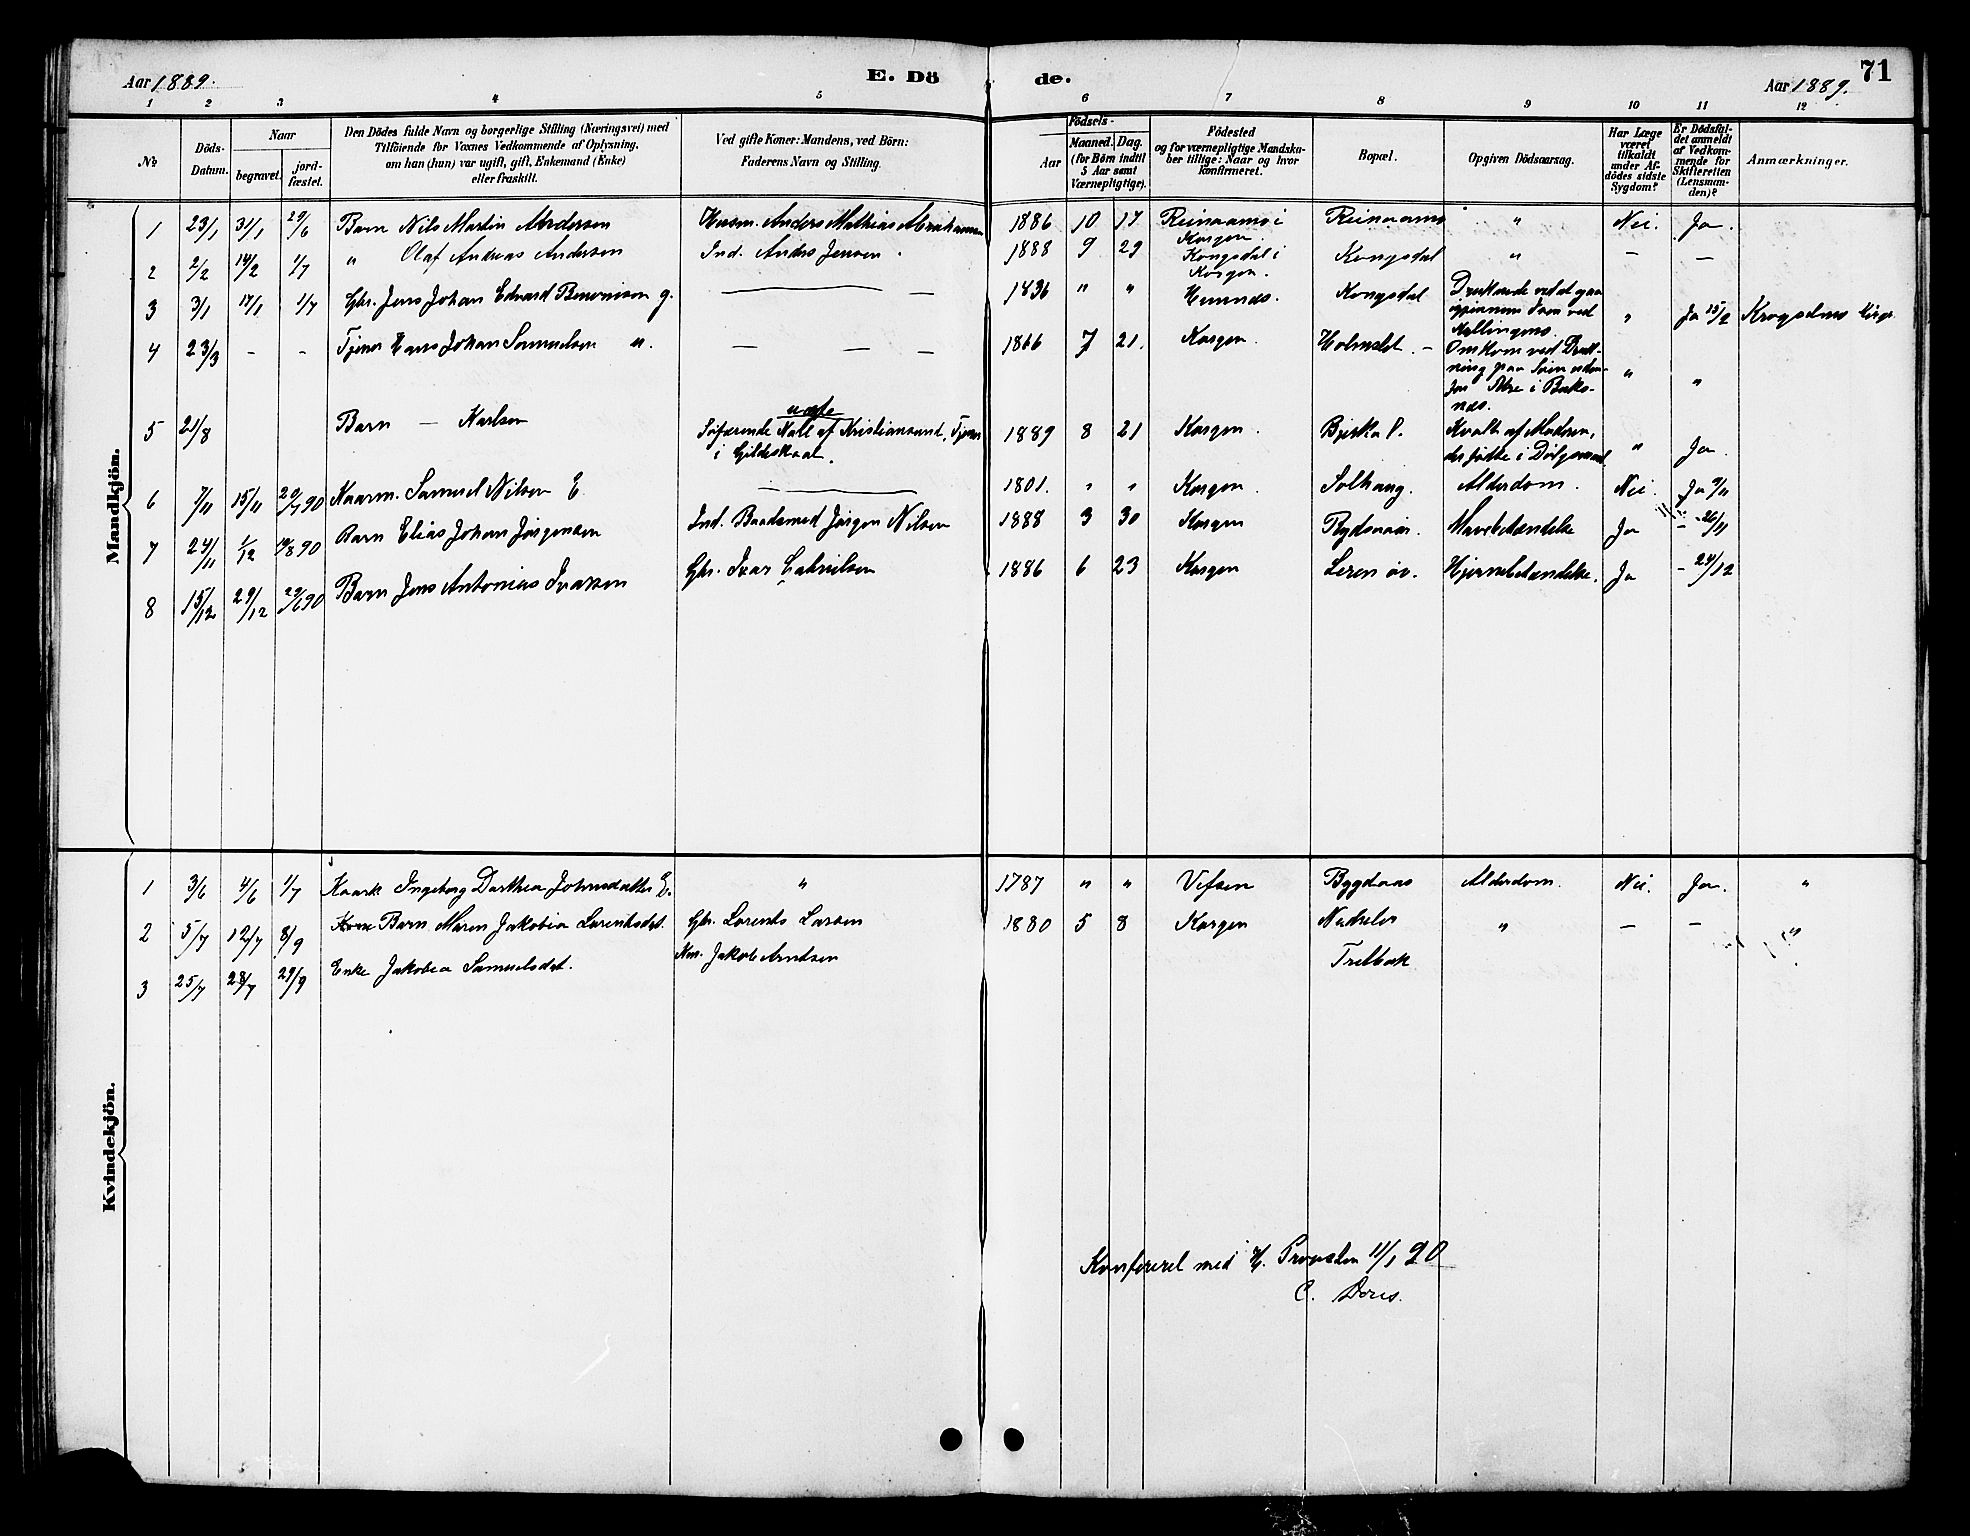 Aar 1889. E. Dö de. Aar 1889. 71
1 2 3 4 5 6 7 8 9 10 11 12
No
Döds-
Datum.
Naar
begravet.
jord-
fæstet.
Den Dödes fulde Navn og borgerlige Stilling (Næringsvei) med
Tilföiende for Voxnes Vedkommende af Oplysning,
om han (hun) var ugift, gift, Enkemand (Enke)
eller fraskilt.
Ved gifte Koner: Mandens, ved Börn:
Faderens Navn og Stilling.
Födsels-
Aar
Maaned. Dag.
(for Börn indtil
5 Aar samt
Værnepligtige).
Födested
og for værnepligtige Mandska-
ber tillige: Naar og hvor
konfirmeret.
Bopæl.
Opgiven Dödsaarsag.
Har Læge
været
tilkaldt
under Af-
dödes sidste
Sygdom?
Er Dödsfal-
det anmeldt
af Vedkom-
mende for
Skifteretten
(Lensman-
den)?
Anmærkninger.
Mandkjön.
1 23/1 31/1 29/6 Barn Nils Martin Andersen Husm. Anders Mathias Abrahamsen 1886 10 17 Reinaamo i Korgen. Reinaamo " Nei. Ja.
2 2/2 14/2 1/7 " Olaf Andreas Andersen Ind. Anders Jensen. 1888 9 29 Kongsdal i Korgen. Kongsdal " — —
3 3/1 17/1 1/7 Gbr. Jens Johan Edvard Benonisen g. — — 1836 " " Hemnæs. Kongsdal Druknede ved at gaa
igjennem Isen ved
" Ja 15/2
4 23/3 - - Tjener Hans Johan Samuelsen u. — — — 1866 7 21. Korgen. — Omkom ved Druk-
ning paa
" "
5 21/8 Barn — Karlsen uægte
Søfarende af Kristiansund, Tjener
i Gildeskaal. 1889 8 21 Korgen. Kvalt af Moderen,
" Ja.
6 7/11 15/11 Kaarm. Samuel Nilsen E. — 1801. " " Korgen. Solhaug. Alderdom. Nei. Ja 9/11
7 24/11 1/12 Barn Elias Johan Jørgensen Ind. Baadsmed Jørgen Nilsen 1888 3 30 Korgen Mavebetændelse Ja - 26/11
8 15/12 29/12 29/6 90 Barn Jens Antonius Ivarsen Gbr. Ivar Gabrielsen 1886 6 23 Korgen Leren øv. Hjernebetændelse. Ja - 24/12
Kvindekjön.
1 3/6 4/6 1/7 Kaark Ingeborg Dorthea Johnsdatter E. " 1787 " " Vefsen Bygdaas Alderdom. Nei. Ja. "
2 5/7 12/7 8/9 Barn Maren Jakobia Larentsdat. Gbr. Lorents Larsen 1880 5 8 Korgen " — — "
3 25/7 28/7 29/9 Enke Jakobea Samuelsdat. Jakob Arntsen
Konfereret med H. Provsten 11/1 90